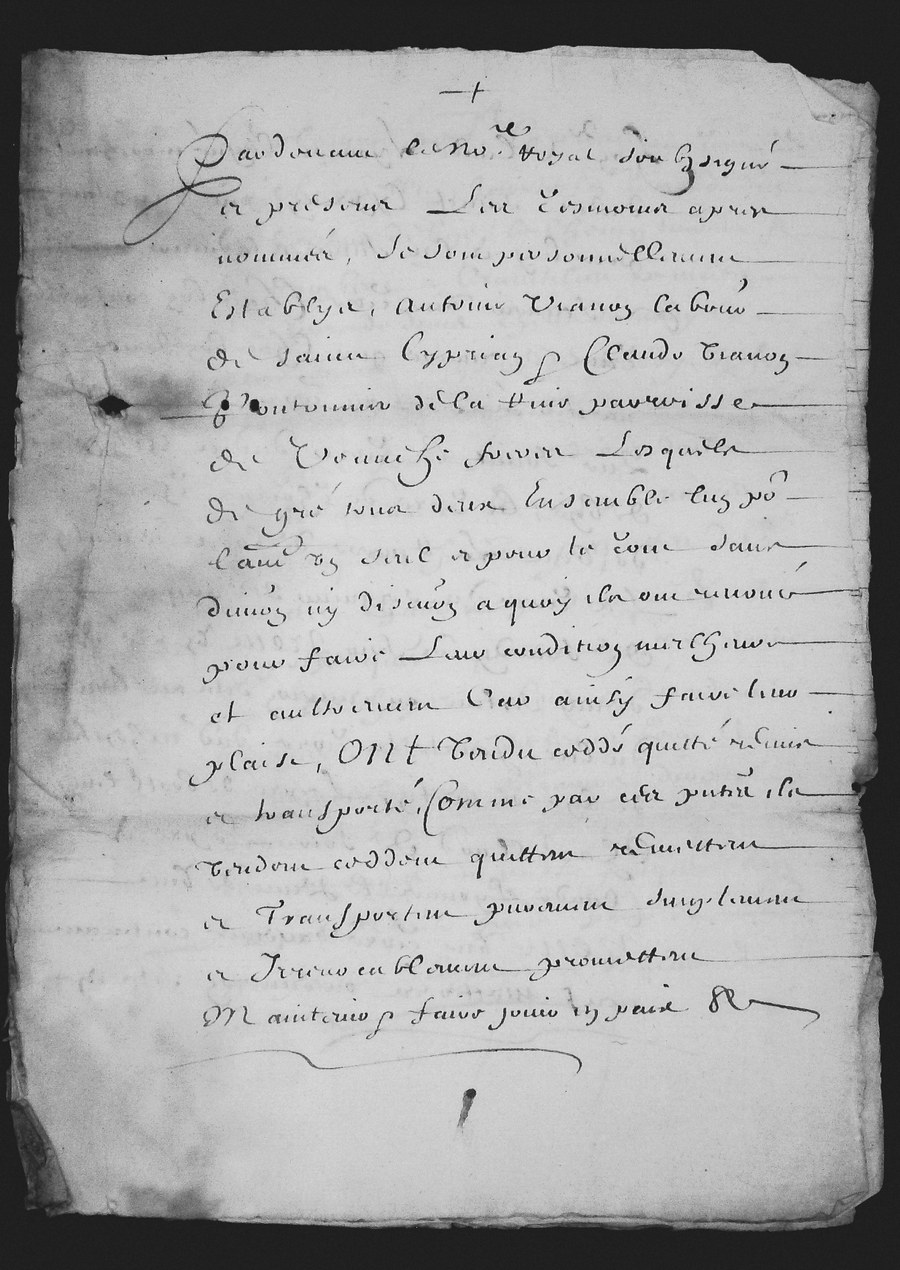 +
Pardevant le no.re Royal soubzsigné
et presens Les tesmoins apres
nommés, Se sont personnellement
Establys, Antoine Vianon labour
de saint Cyprian & Claude Vianon
de la Rive parroisse
de Veauche freres Lesquels
de gré tous deux Ensemble lun po
lautr un seul et pour le tout sans
division ny discution a quoy ils ont renoncé
pour faire Leur condition meilheure
et aultrement Car ainsy faire leur
plaise, ONt Vendu ceddé quitté remis
et transporté, Comme par ces pntes ils
Vendent ceddent quittent remettent
et Transportent purement simplement
et Irrevocablement promettent
Maintenir & faire jouir en paix &